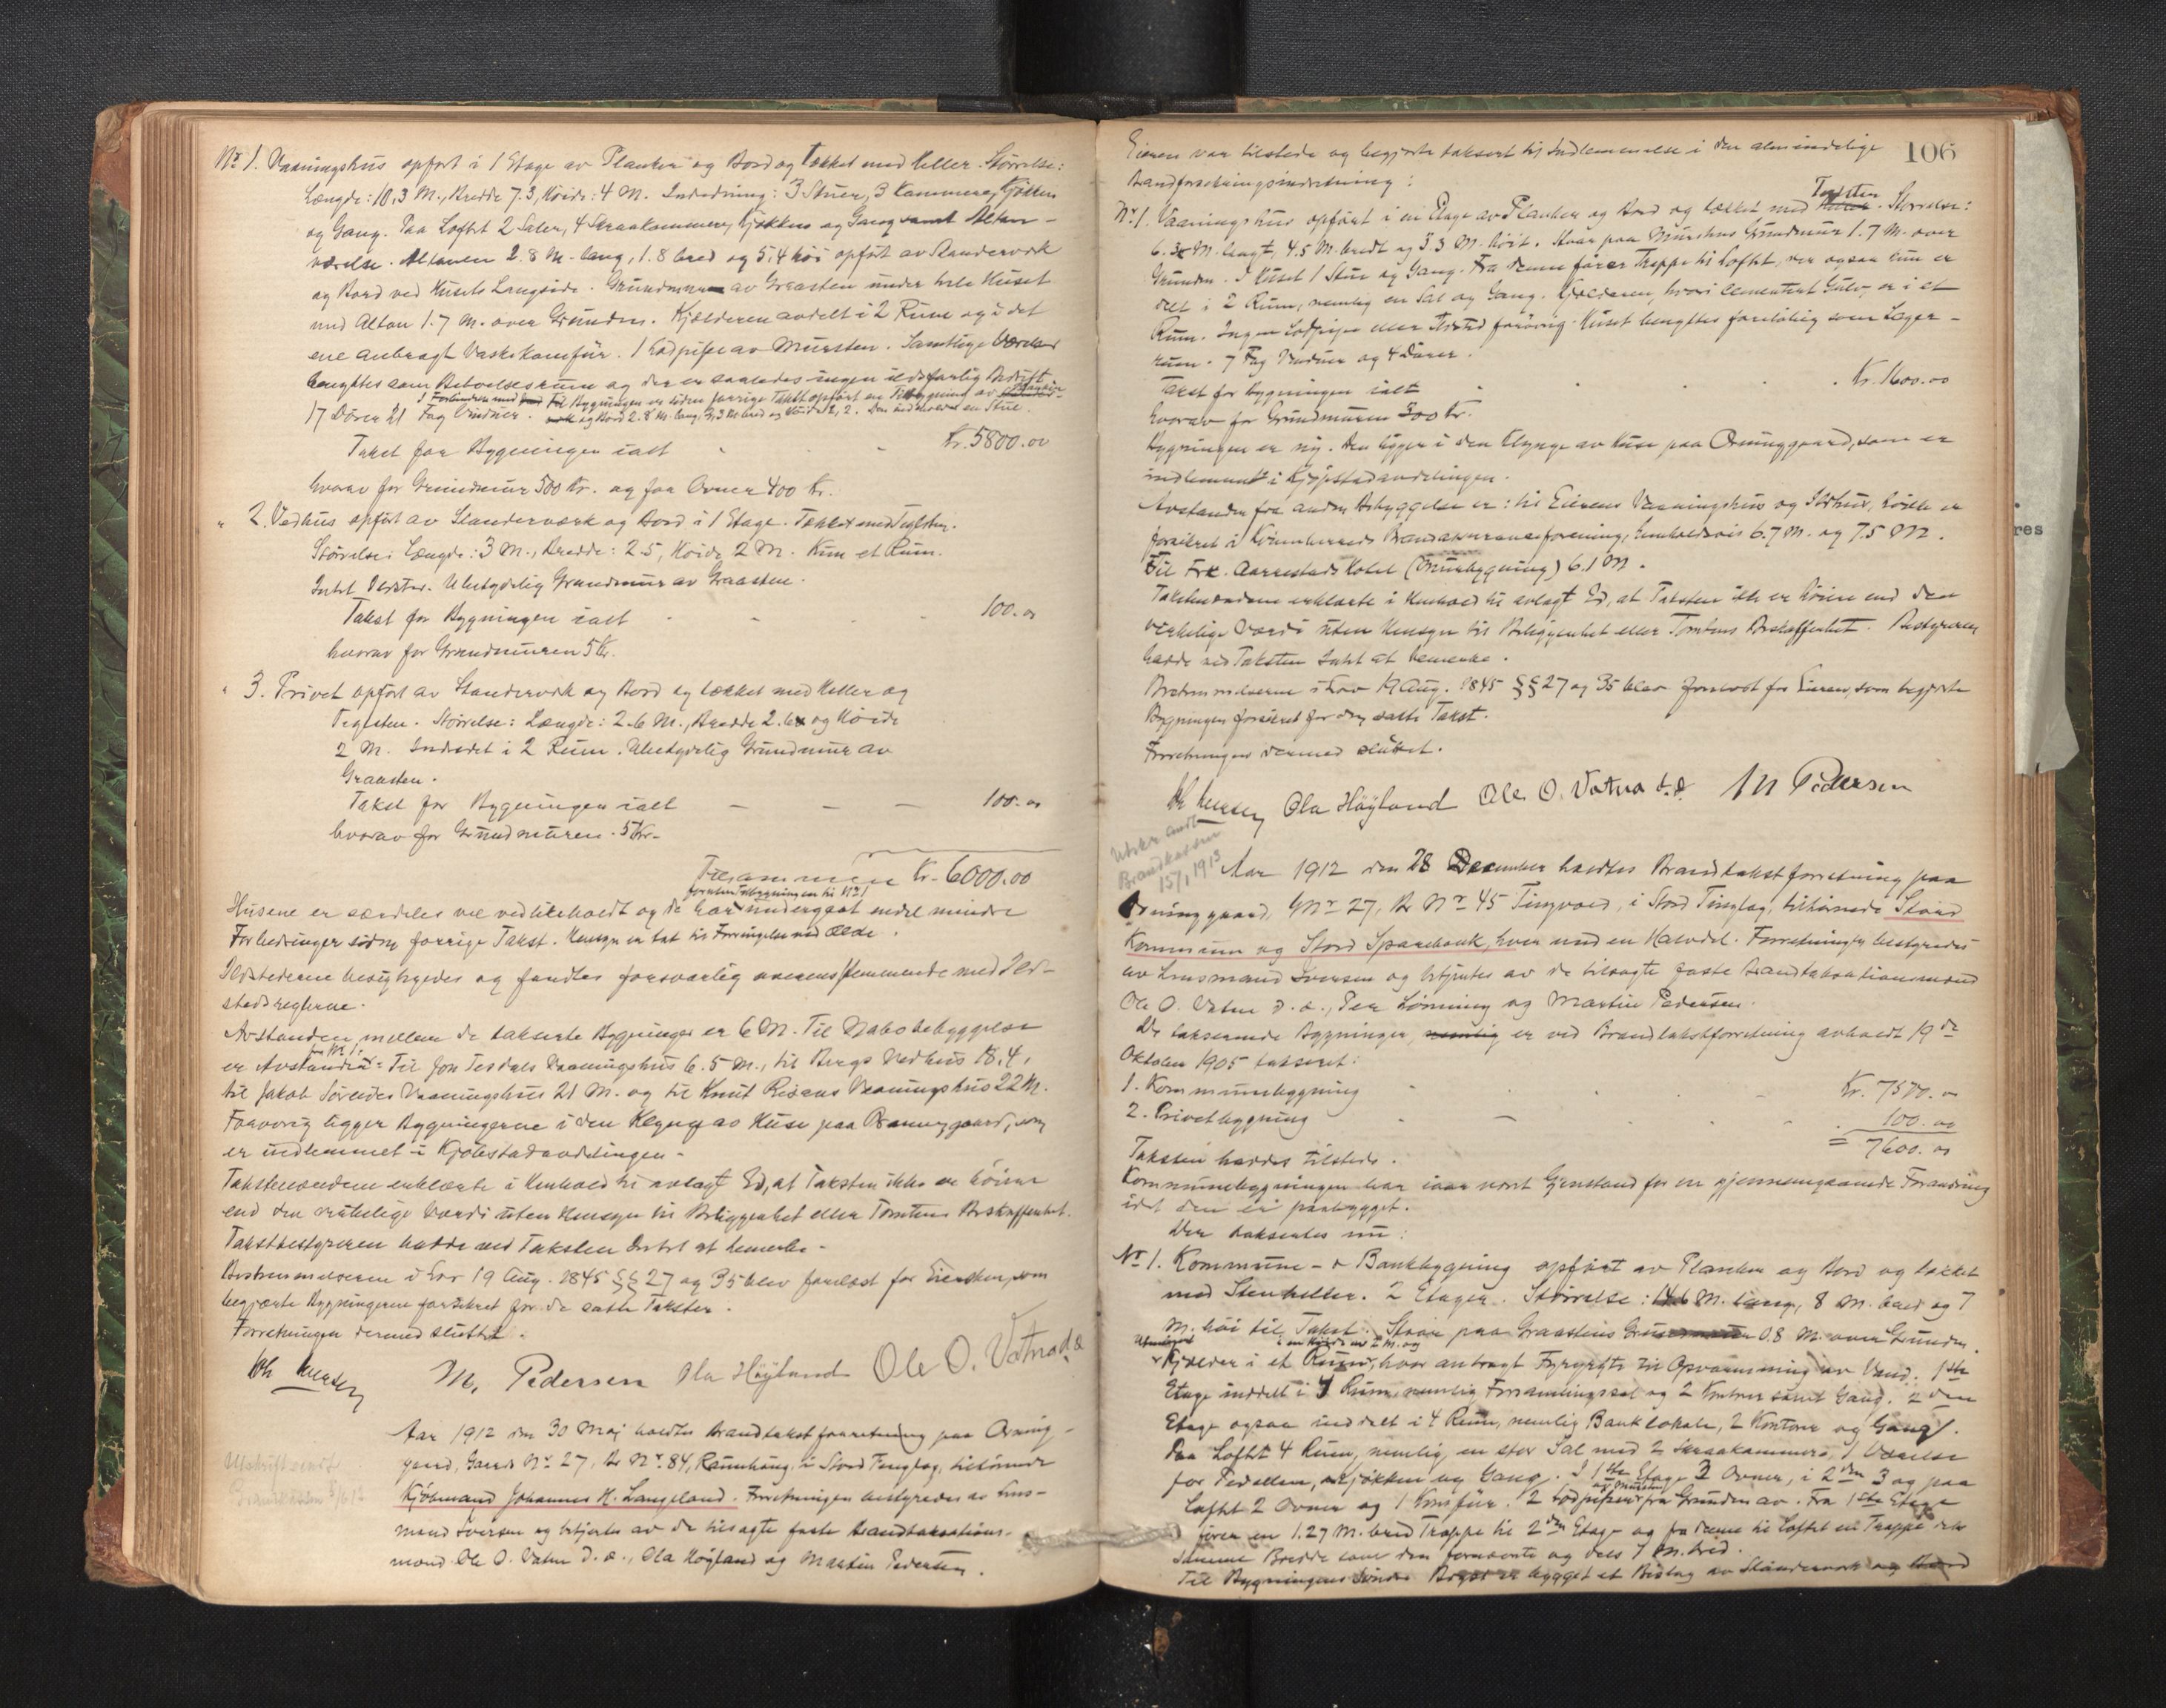 Nr 1. Vaaningshus opført i 1 Etage av Planker og Bord og tækket med Heller. Størrelse:
Længde: 10,3 M., Bredde 7.3, Høide: 4 M. Inddeling: 3 Stuer, 3 Kammers, Kjøkken
og Gang. Paa Loftet 2 Saler, 4 Skraakammers, Kjøkken og Gang samt Altan-
værelse. Altanen 2.8 M. lang, 1.8 bred og 5,4 høi opført av Standerverk
og Bord ved Husets Langside. Grundmur av Graasten under hele Huset
med Altan 1.7 M. over Grunden. Kjælderen avdelt i 2 Rum og i det
ene anbragt Vaskekomfür. 1 Lodpipe av Mursten. Samtlige Værelser
benyttes som Beboelsesrum og der er saaledes ingen ildsfarlig Bedrift
I Forbindelse med Bygningen er siden forrige Takst opført en Tilbygning av
17 Dører 21 Fag Vinduer. og Bord 2.8 M. lang, bred og Høide 2,2. Den indeholder en Stue.
Takst for Bygningen ialt - - Kr. 5800.00
hvorav for Grundmur 500 Kr. og for Ovner 400 Kr.
" 2. Vedhus opført av Standerværk og Bord i 1 Etage. Tækket med Teglsten.
Størrelse: Længde: 3 M., Bredde: 2.5, Høide 2 M. Kun et Rum.
Intet Ildsted. Ubetydelig Grundmur av Graasten.
Takst for Bygningen ialt - - - 100.00
hvorav for Grundmuren 5 Kr.
" 3. Privet opført av Standerverk og Bord og tækket med Heller og
Teglsten. Størrelse: Længde: 2.6 M., Bredde 2.6 og Høide
2 M. Indredet i 2 Rum. Ubetydelig Grundmur av
Graasten.
Takst for Bygningen ialt - - - 100.00
hvorav for Grundmuren. 5 Kr.
Tilsammen Kr. 6000.00
foruten Tilbygningen til No 1
Husene er særdeles vel vedlikeholdt og de har undergaat endel mindre
Forbedringer siden forrige Takst. Hensyn er tat til Forringelse ved Ælde.
Ildstederne besigtigedes og fandtes forsvarlig overensstemmende med Ild-
stedsreglerne.
Avstanden mellem de takserte Bygninger er 6 M. Til Nabobebyggelse
fra Nr 1
er Avstanden: Til Jon Tesdals Vaaningshus 6.5 M., til Bergs Vedhus 18.4,
til Jakob Sørenes Vaaningshus 21 M. og til Knut Risens Vaaningshus 22 M.
Forøvrig ligger Bygningerne i den Klynge av Huse paa Osninggaard, som
er indlemmet i Kjøbstadavdelingen.
Takstmændene erklærte i Henhold til avlagt Ed, at Taksten ikke er høiere
end den virkelige Værdi uten Hensyn til Beliggenhet eller Tomtens Beskaffenhet.
Takstbestyreren hadde ved Taksten Intet at bemerke.
Bestemmelserne i Lov 19 Aug. 1845 §§ 27 og 35 blev forelæst for Eiersken, som
begjærte Bygningerne forsikret for de satte Takster.
Forretningen dermed sluttet.
M. Pedersen Ola Høyland Ole O. Vatna d.æ.
Aar 1912 den 30 Maj holdtes Brandtakstforretning paa Osning-
gaard, Gaards Nr. 27, Br Nr. 84, Raunhaug, i Stord Tinglag, tilhørende
Kjøbmand Johannes H. Langeland. Forretningen bestyredes av Lens-
mand Iversen og betjentes av de tilsagte faste Brandtaksations-
mænd Ole O. Vatna d.æ., Ola Høyland og Martin Pedersen.
106
Eieren var tilstede og begjærte taksert til Indlemmelse i den almindelige
Brandforsikringsindretning:
Teglsten
Nr. 1. Vaaningshus opført i en Etage av Planker og Bord og tækket med. Størrelse:
6.3 M. langt, 4.5 M. bredt og 3.3 M. høit. Staar paa Murstens Grundmur 1.7 M. over
Grunden. I Huset 1 Stue og Gang. Fra denne fører Trappe til Loftet, der ogsaa kun er
delt i 2 Rum, nemlig en Sal og Gang. Kjælderen, hvori cementert Gulv, er i et
Rum. Ingen Lodpipe eller Ildsted forøvrig. Huset benyttes foreløbig som Lager-
rum. 7 Fag Vinduer og 4 Dører.
Takst for Bygningen ialt - - - Kr. 1600.00
hvorav for Grundmuren 300 Kr.
Bygningen er ny. Den ligger i den Klynge av Huse paa Osninggaard, som er
indlemmet i Kjøpstadavdelingen.
Avstanden fra anden Bebyggelse er: til Eierens Vaaningshus og Ildhus, hvilke er
forsikret i Kvinnherreds Brandassuranceforening, henholdsvis 6.7 M. og 7.5 M.
Til Frk. Aarrestads Hotel (Murbygning) 6.1 M.
Takstmændene erklærte i Henhold til avlagt Ed, at Taksten ikke er høiere end den
virkelige Værdi uten Hensyn til Beliggenhet eller Tomtens Beskaffenhet. Bestyreren
hadde ved Taksten Intet at bemerke.
Bestemmelserne i Lov 19 Aug. 1845 §§ 27 og 35 blev forelæst for Eieren, som begjærte
Bygningen forsikret for den satte Takst.
Forretningen dermed sluttet.
Ola Høyland Ole O. Vatna d.æ. M Pedersen
Utskr. sendt
Brandkassen
15/1 1913
Aar 1912 den 28 December holdtes Brandtakstforretning paa
Osninggaard, GNr 27, Br Nr 45 Tingvold, i Stord Tinglag, tilhørende Stord
Kommune og Stord Sparebank, hver med en Halvdel. Forretningen bestyredes
av Lensmand Iversen og betjentes av de tilsagte faste Brandtaksationsmænd
Ole O. Vatna d.æ., Per Lønning og Martin Pedersen.
De takserende Bygninger, er ved Brandtakstforretning avholdt 19de
Oktober 1905 taksert:
1. Kommunebygning - - - Kr. 7500.00
2. Privetbygning - - - 100.00
= 7600.00
Taksten hadde tilstede.
Kommunebygningen har iaar været Gjenstand for en gjennemgaaende Forandring
idet den er paabygget.
Der takseres nu:
Nr 1. Kommune- & Bankbygning opført av Planker og Bord og tækket
med Stenheller. 2 Etager. Størrelse: 14.6 M. lang, 8 M. bred og 7
M. høi til Takst. Staar paa Graastens Grundmur 0.8 M. over Grunden.
Kjælder i et Rum, hvor anbragt Fyrgryte til Opvarmning av Vand. 1ste
Etage inddelt i 4 Rum, nemlig Forsamlingssal og 2 Kontorer samt Gang. 2den
Etage ogsaa inddelt i 4 Rum, nemlig Banklokale, 2 Kontorer og Gang.
Paa Loftet 4 Rum, nemlig en stor Sal med 2 Skraakammers, 1 Værelse
for Pedellen, Kjøkken og Gang. I 1ste Etage 3 Ovner, i 2den 3 og paa
av Mursten
Loftet 2 Ovner og 1 Komfür. 2 Lodpiper fra Grunden av. Fra 1ste Etage
fører en 1.27 M. bred Trappe til 2den Etage og fra denne til Loftet en Trappe
samme Bredde som den førnævnte og dels 1 M. bred.
Til Bygningens er bygget et Bislag av Standerverk og Bord